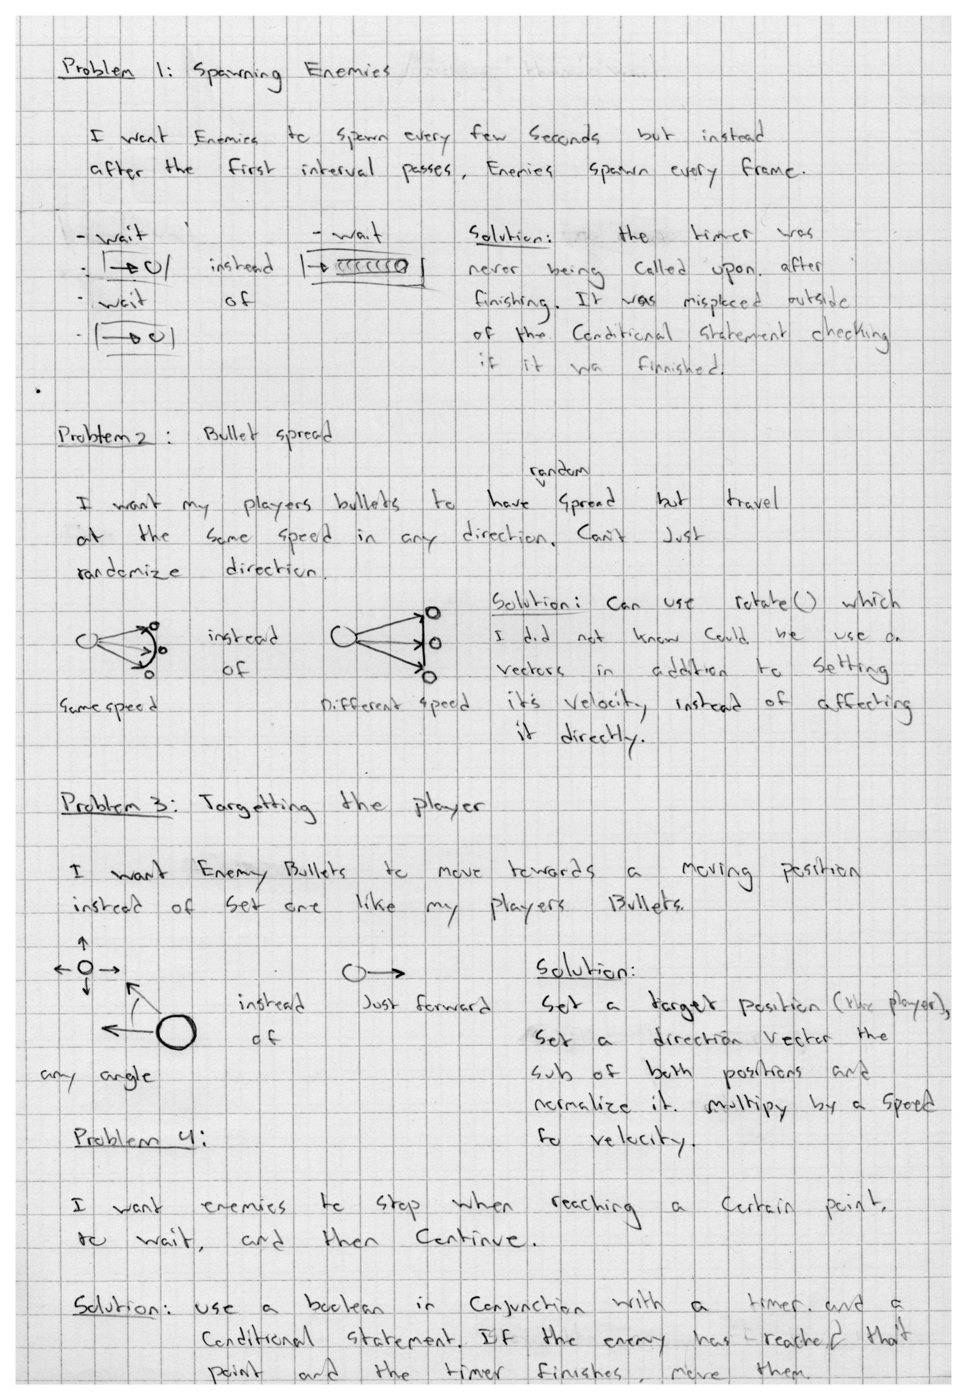 Problem 1: Spawning Enemies
I want Enemies to spawn every few seconds but instead
after the first interval passes, Enemies spawn every frame.
- wait
instead
- wait
of
- wait
Solution: the timer was
never being called upon after
finishing. It was misplaced outside
of the Conditional statement checking
if it wa finnished.
Problem 2: Bullet spread
random
I want my players bullets to have spread but travel
at the same speed in any direction. Can't Just
randomize direction.
instead
of
Same speed
Different speed
Solution: Can use rotate() which
I did not know could be use on
vectors in addition to setting
it's velocity instead of affecting
it directly.
Problem 3: Targetting the player
I want Enemy Bullets to move towards a moving position
instead of set one like my players Bullets.
instead
of
any angle
Just forward
Solution:
Set a target position (the player),
Set a direction vector the
sub of both positions and
normalize it. multipy by a speed
to velocity.
Problem 4:
I want enemies to stop when reaching a certain point,
to wait, and then Continue.
Solution: use a boolean in Conjunction with a timer. and a
Conditional statement. If the enemy has reached that
point and the timer finishes, move them